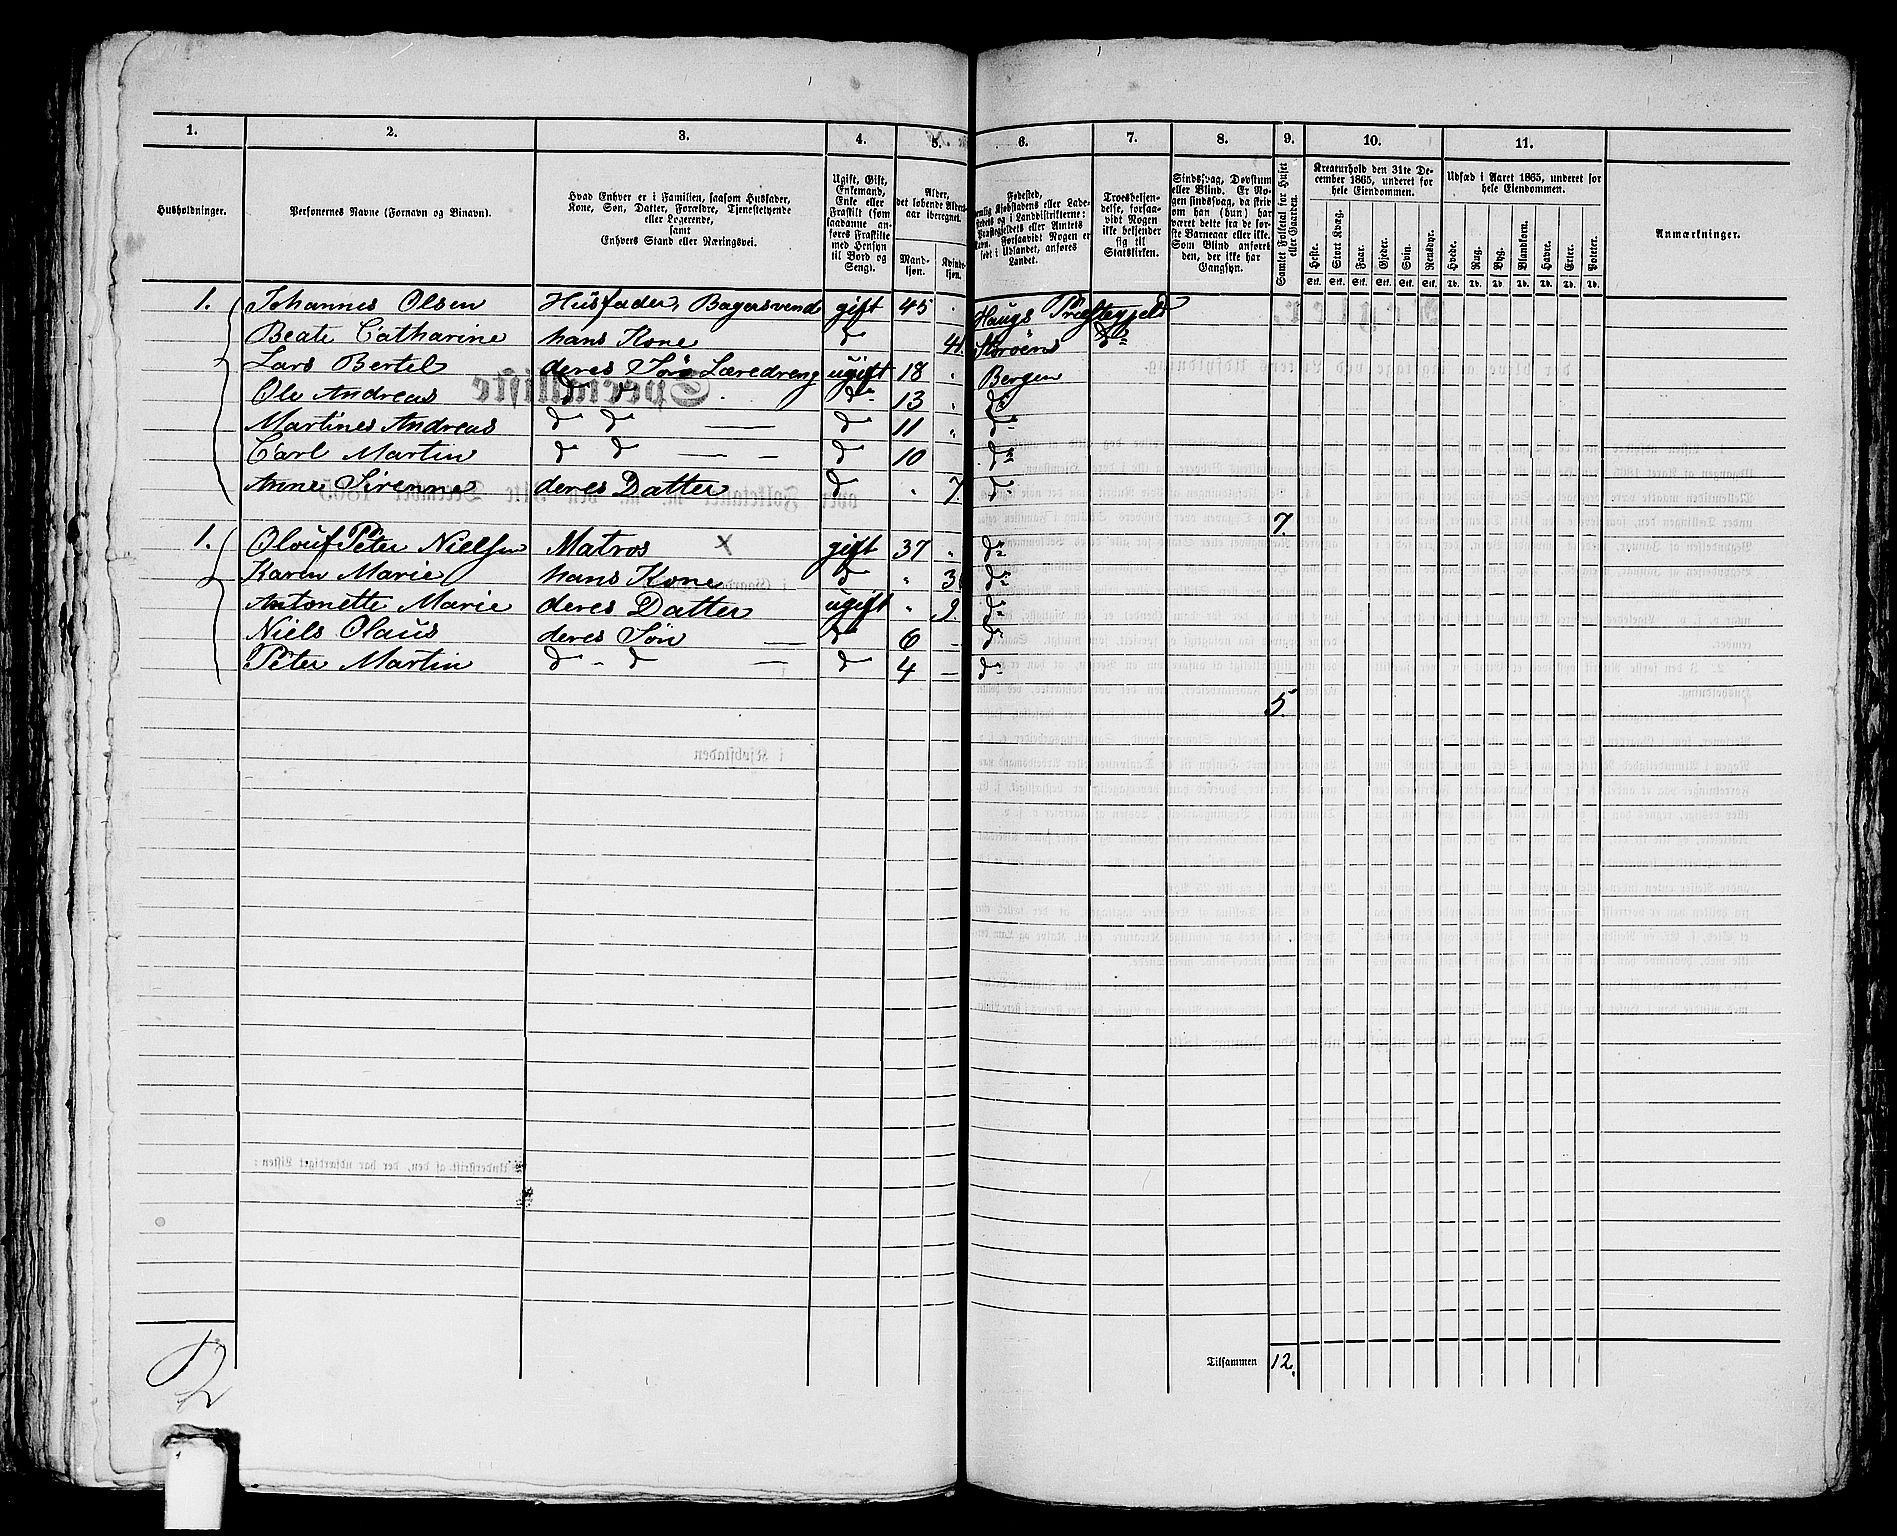 1. 2. 3. 4. 5. 6. 7. 8. 9. 10. 11.
Husholdninger.
Personernes Navne (Fornavn og Binavn).
Hvad Enhver er i Familien, saasom Husfader,
Kone, Søn, Datter, Forældre, Tjenestetyende
eller Logerende,
samt
Enhvers Stand eller Næringsvei.
Ugift, Gift,
Enkemand,
Enke eller
Fraskilt (som
saadanne an-
føres Fraskilte
med Hensyn
til Bord og
Seng).
Alder,
det løbende Alders-
aar iberegnet.
Mand-
kjøn.
Kvinde-
kjøn.
Fødested,
Landet.
Troesbekjen-
delse, forsaa-
vidt Nogen
ikke bekjender
sig til
Statskirken.
Sindssvag, Døvstum
eller Blind. Er No-
gen sindssvag, da skriv
om han (hun) har
været dette fra de før-
ste Barneaar eller ikke.
Som Blind anføres
den, der ikke har
Gangsyn.
Samlet Folketal for Huset
eller Gaarden.
Kreaturhold den 31te De-
cember 1865, underet for
hele Eiendommen.
Heste. Stort Kvæg. Faar. Gjeder. Svin. Rensdyr.
Stk. Stk. Stk. Stk. Stk. Stk.
Udsæd i Aaret 1865, underet for
hele Eiendommen.
Hvede. Rug. Byg. Blandkorn. Havre. Erter. Poteter.
Td. Td. Td. Td. Td. Td. Td.
Anmærkninger.
1. Johannes Olsen Husfader, Bagersvend gift 45 Haugs Præstegjeld
Beate Catharine hans Kone do 41. do
Lars Bertel deres Søn Læredreng ugift 18 Bergen
Ole Andreas do do do 13 do
Martines Andreas do do do 11 do
Carl Martin do do do 10 do
Anne Sirenne deres Datter do 7. do
7.
1. Olouf Peter Nielsen Matros × gift 37 do
Karen Marie hans Kone do do
Antonette Marie deres Datter ugift 9. do
Niels Olaus deres Søn do 6 do
Peter Martin do - do do 4 do
5.
Tilsammen 12.